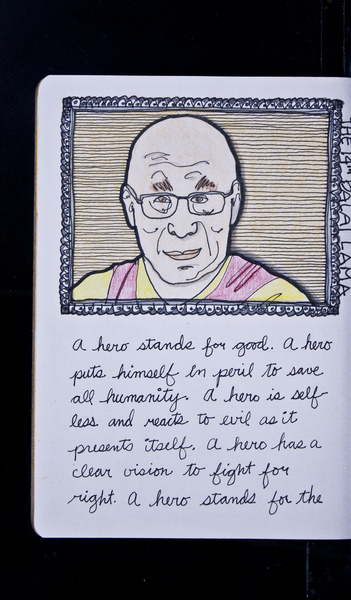 THE 14TH DALAI LAMA
A hero stands for good. A hero
puts himself in peril to save
all humanity. A hero is self-
less and reacts to evil as it
presents itself. A hero has a
clear vision to fight for
right. A hero stands for the